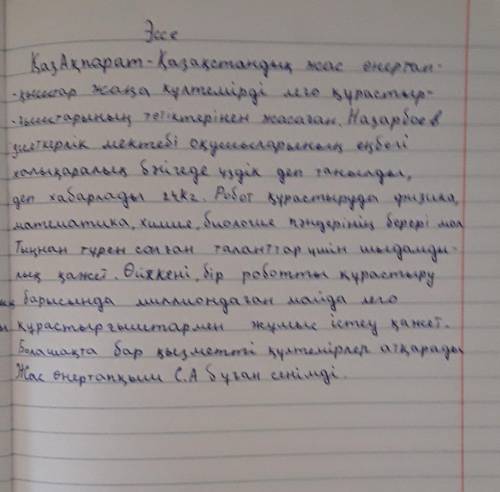 Эссе
ҚазАқпарат-Қазақстандық жас өнертап-
-қыштар жаңа күлтемірді лего құрастыр-
-ғыштарының тетіктерінен жасаған. Назарбаев
зияткерлік мектебі оқушыларының еңбегі
халықаралық бәйгеде үздік деп танылды,
деп хабарлады 24kz. Робот құрастыруды физика,
математика, химия, биология пәндерінің берері мол
Тыңнан түрен салған таланттар үшін шыдамды-
лық қажет. Өйткені, бір роботты құрастыру
барысында миллиондаған майда лего
құрастырғыштармен жұмыс істеу қажет.
Болашақта бар қызметті күлтемірлер атқарады
Жас өнертапқыш С.А бұған сенімді.